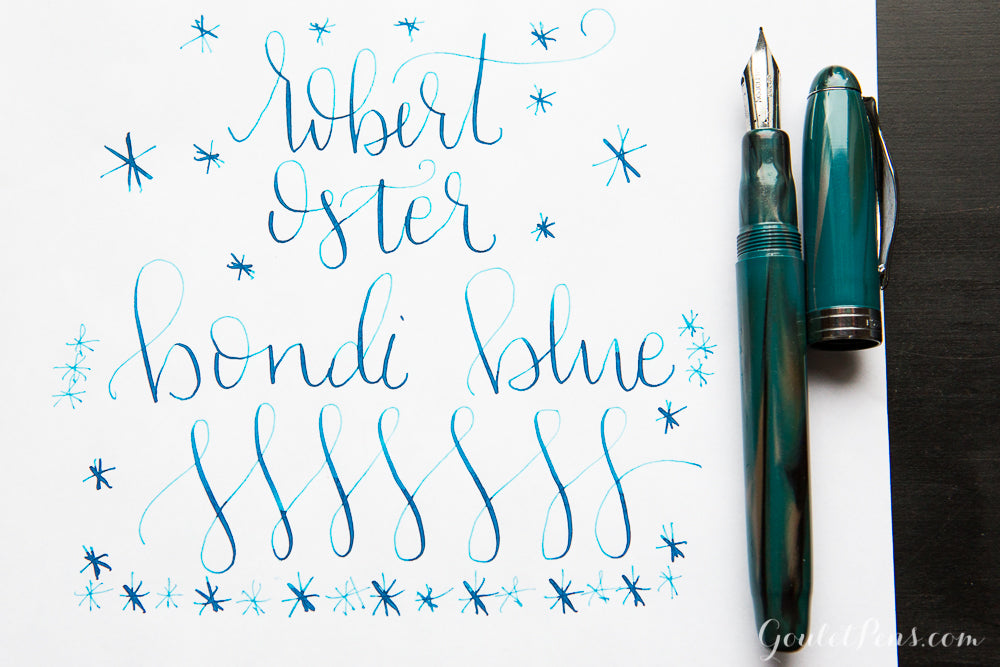 robert
oster
bondi blue
GouletPens.com